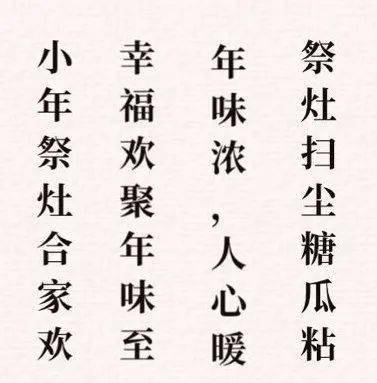 小年祭灶合家欢
幸福欢聚年味至
年味浓，人心暖
祭灶扫尘糖瓜粘